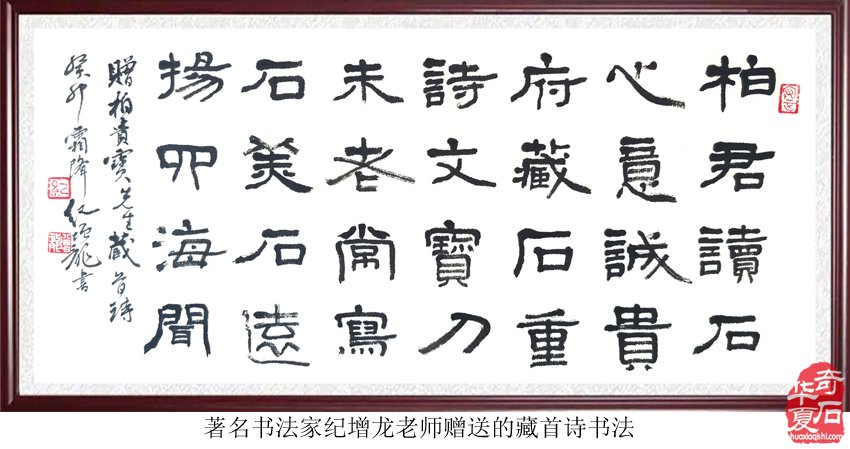 柏君讀石
心意誠貴
府藏石重
詩文寶刀
未老常寫
石美石遠
揚四海聞
贈柏貴寶先生藏首詩
癸卯霜降紀增龍書
紀
華夏
奇石
huaxiaqishi.com
著名书法家纪增龙老师赠送的藏首诗书法